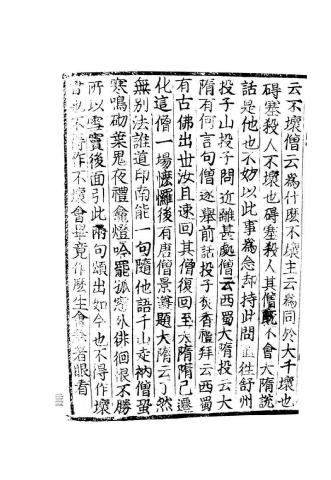 云不壞僧云為什麼不壞主云為同於大千壞也
礙塞殺人不壞也礙塞殺人其僧既不會大隋說
話是他也不妙以此事為念却持此問直往舒州
投子山投子問近離甚處僧云西蜀大隋投云大
隋有何言句僧遂舉前話投子焚香禮拜云西蜀
有古佛出世汝且速回其僧復回至大隋隋已遷
化這僧一場懡㦬後有唐僧景遵題大隋云了然
無別法誰道印南能一句隨他語千山走衲僧蛩
寒鳴砌葉鬼夜禮龕燈吟罷孤窻外徘徊恨不勝
所以雪竇後面引此兩句頌出如今也不得作壞
會也不得作不壞會畢竟作麼生會急著眼看